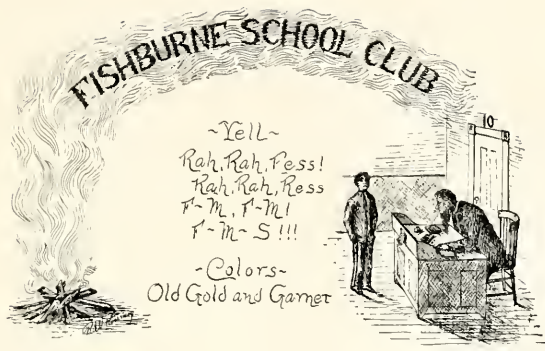 FISHBURNE SCHOOL CLUB
10
~Yell~
Rah, Rah, Fess!
Rah, Rah, Ress
F-M, F-M!
F-M-S!!!
-Colors-
Old Gold and Garnet